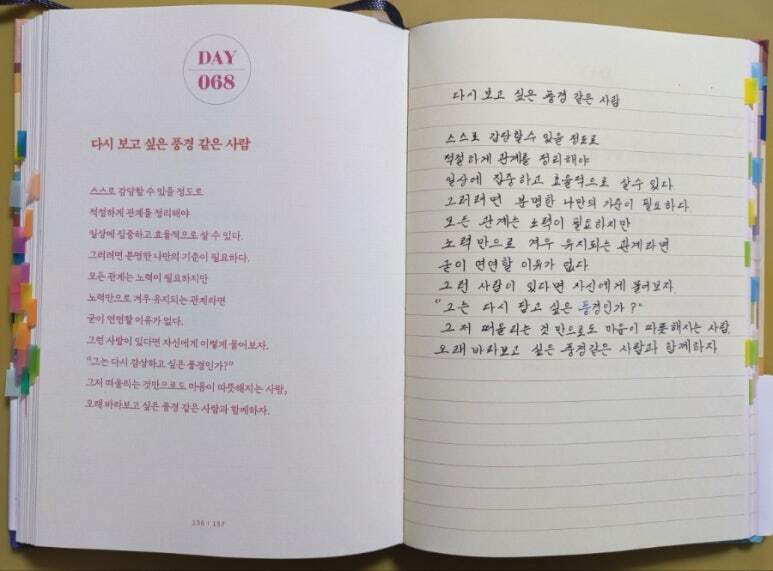 DAY
068
다시 보고 싶은 풍경 같은 사람
스스로 감당할 수 있을 정도로
적절하게 관계를 정리해야
일상에 집중하고 효율적으로 살 수 있다.
그러려면 분명한 나만의 기준이 필요하다.
모든 관계는 노력이 필요하지만
노력만으로 겨우 유지되는 관계라면
굳이 연연할 이유가 없다.
그런 사람이 있다면 자신에게 이렇게 물어보자.
“그는 다시 감상하고 싶은 풍경인가?”
그저 떠올리는 것만으로도 마음이 따뜻해지는 사람,
오래 바라보고 싶은 풍경 같은 사람과 함께하자.
156 | 157
다시 보고 싶은 풍경 같은 사람
스스로 감당할 수 있을 정도로
적절하게 관계를 정리해야
일상에 집중하고 효율적으로 살 수 있다
그러려면 분명한 나만의 기준이 필요하다
모든 관계는 노력이 필요하지만
노력만으로 겨우 유지되는 관계라면
굳이 연연할 이유가 없다
그런 사람이 있다면 자신에게 물어보자
"그는 다시 담고 싶은 풍경인가?"
그저 떠올리는 것 만으로도 마음이 따뜻해지는 사람
오래 바라보고 싶은 풍경같은 사람과 함께하자